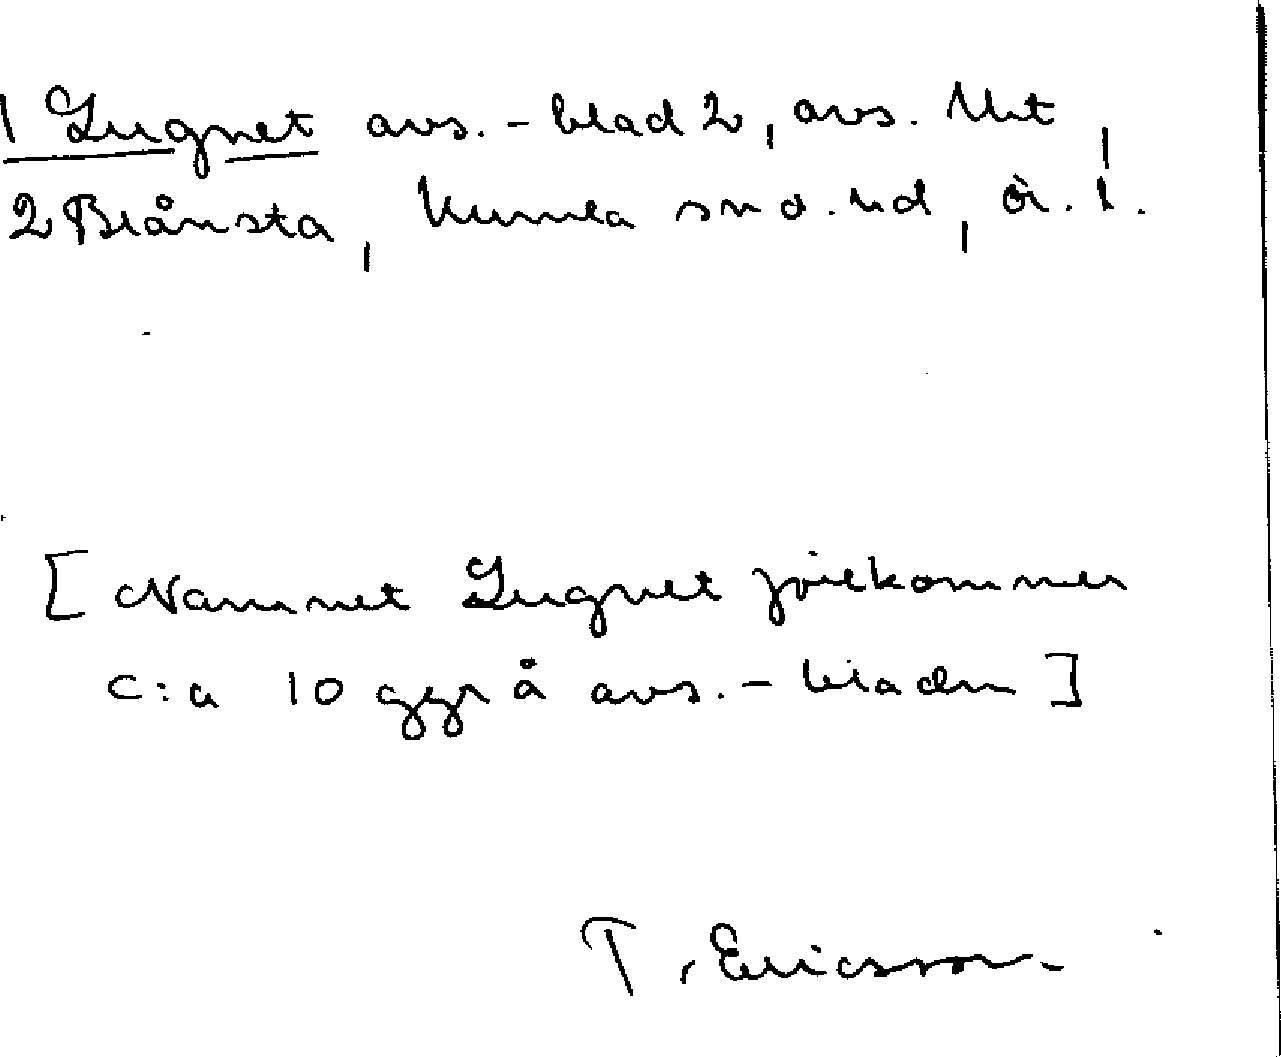 1 Lugnet avs. - blad 2, avs. Urt,
2 Brånsta, Kumla snd. hd, Ör. l.
[Namnet Lugnet förekommer
c:a 10 ggr å avs. - bladen]
T. Ericsson.